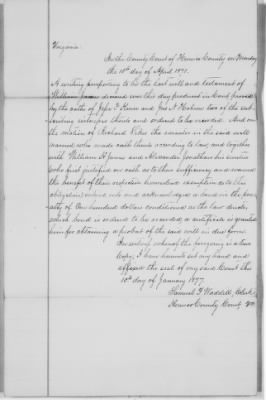 Virginia:
In the County Court of Henrico County on Monday
the 10th day of April 1871.
A writing purporting to be the last will and testament of
William James deceased was this day produced in Court proved
by the oaths of and Jno A two of the sub-
scribing witnesses thereto and ordered to be recorded. And on
the motion of Richard the executor in the said will
named who made oath thereto according to law, and together
with William H James and Alexander Jonathan his sureties
who first justified on oath as to their sufficiency and waived
the benefit of their respective homestead exemptions as to this
obligation entered into and acknowledged a bond in the pen-
alty of One hundred dollars conditioned as the law directs,
which bond is ordered to be recorded, a certificate is granted
him for obtaining a probat of the said will in due form.
In testimony whereof the foregoing is a true
Copy, I have hereunto set my hand and
affixed the seal of my said Court this
10th day of January 1877.
Samuel P. Waddill, Clerk
Henrico County Court, Va